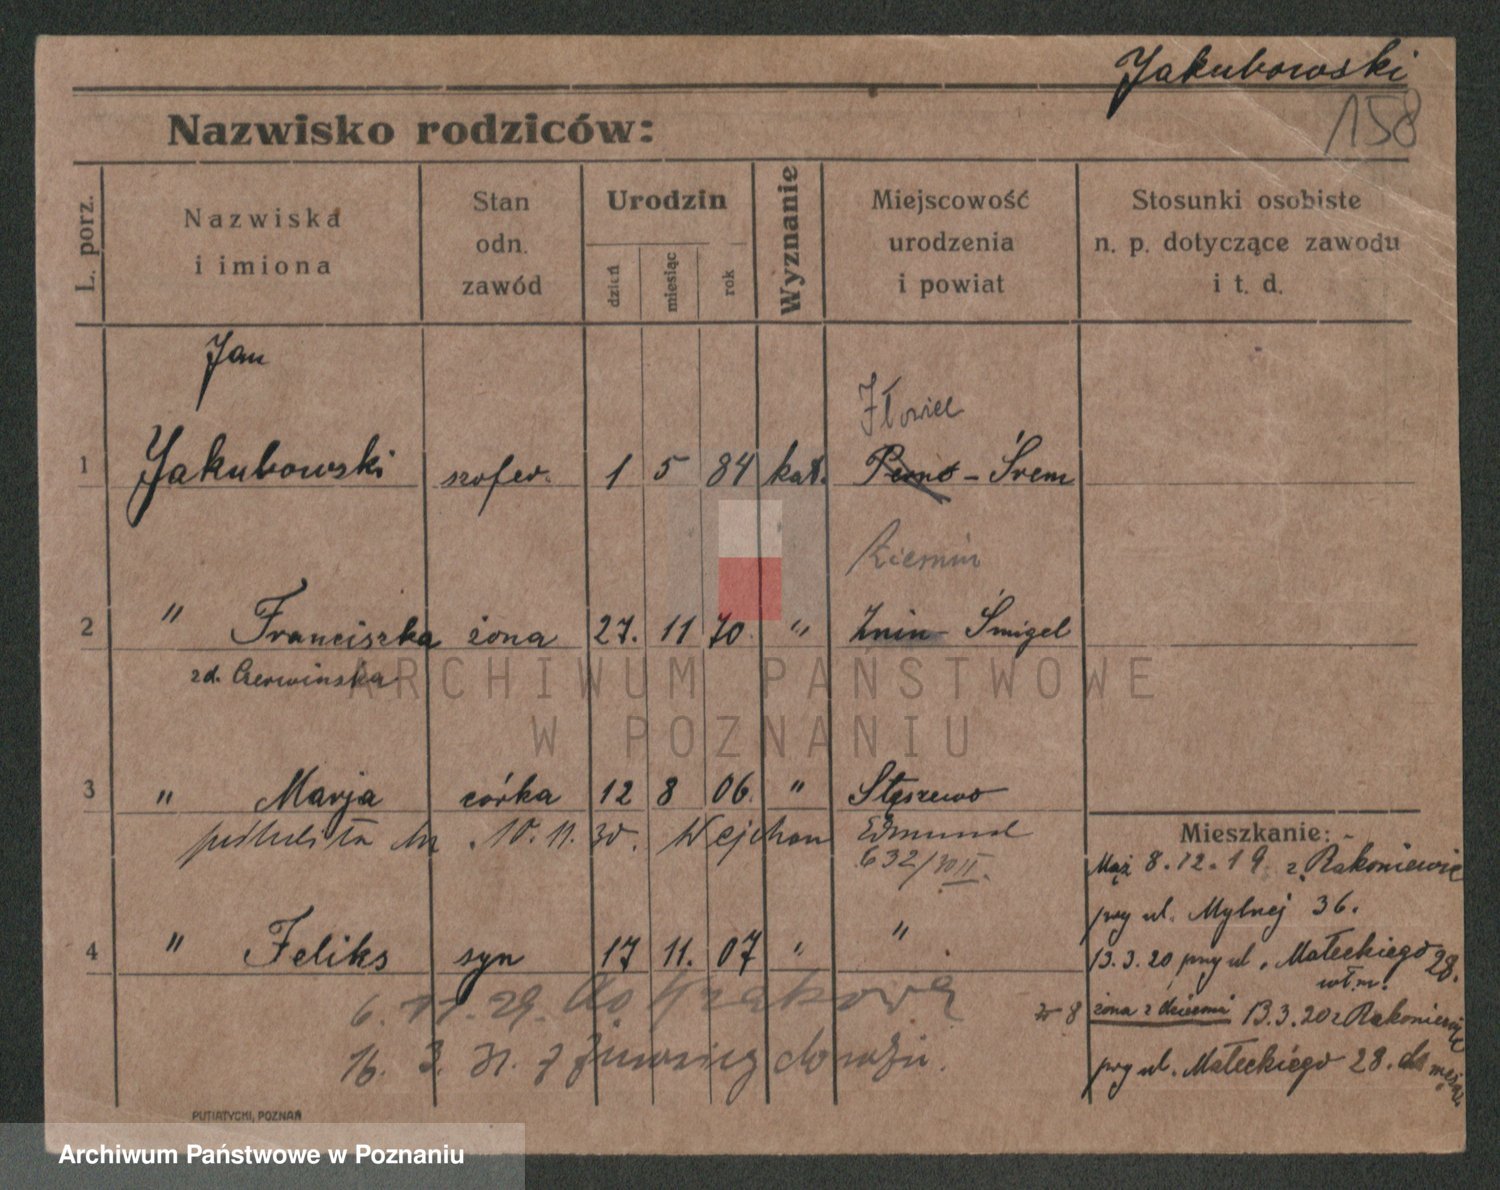 Jakubowski
158
Nazwisko rodziców:
L. porz.
Nazwiska i imiona
Stan odn. zawód
Urodzin
dzień
miesiąc
rok
Wyznanie
Miejscowość urodzenia i powiat
Stosunki osobiste n. p. dotyczące zawodu i t. d.
Jan
1 Jakubowski szofer. 1 5 84 kat. - Śrem
2 " Franciszka żona 27. 11 70. " Żnin - Śmigel
zd. Czerwińska
ARCHIWUM PAŃSTWOWE
W POZNANIU
3 " Marja córka 12 8 06. " Stęszewo
10.11.30. Edmund
632/30 II.
4 " Feliks syn 17 11. 07 " "
6. 11. 29. do Krakowa
16. 3. 31. z
Mieszkanie: -
Mąż 8.12.19 z Rakoniewic
przy ul. Mylnej 36.
13.3.20 przy ul. Małeckiego 28.
wł.m.
żona z dziećmi 13.3.20 z Rakoniewic
przy ul. Małeckiego 28. do męża
PUTIATYCKI, POZNAŃ
Archiwum Państwowe w Poznaniu